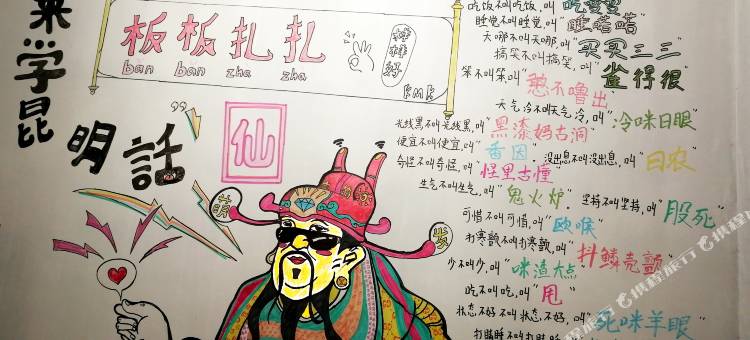 来学昆明话
板板扎扎
ban ban zha zha
棒棒好
KMR
仙
萌
发
吃饭不叫吃饭,叫“吃莽莽”
睡觉不叫睡觉,叫“瞌嗒嗒”
天哪不叫天哪,叫“买买三三”
搞笑不叫搞笑,叫“雀得很”
笨不叫笨,叫“憨不噜出”
天气冷不叫天气冷,叫“冷咪日眼”
光线黑不叫光线黑,叫“黑漆妈古洞”
便宜不叫便宜,叫“香因”
没出息不叫没出息,叫“日农”
奇怪不叫奇怪,叫“怪里古懂”
生气不叫生气,叫“鬼火炉”
坚持不叫坚持,叫“股死”
可惜不叫可惜,叫“欧喉”
打寒颤不叫打寒颤,叫“抖鳞壳颤”
少不叫少,叫“咪渣大点”
吃不叫吃,叫“甩”
状态不好不叫状态不好,叫“死咪羊眼”
打瞌睡不叫打瞌睡
携程旅行
携程